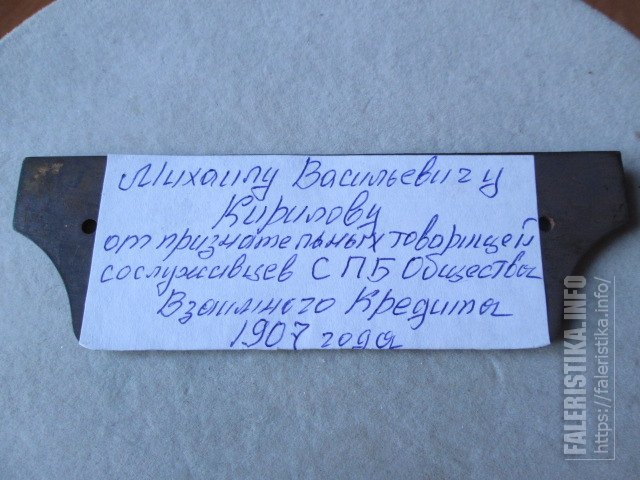 Михаилу Васильевичу
Кирилову
от признательных товарищей
сослуживцев СПБ Общества
Взаимного Кредита
1907 года
FALERISTIKA.INFO
https://faleristika.info/